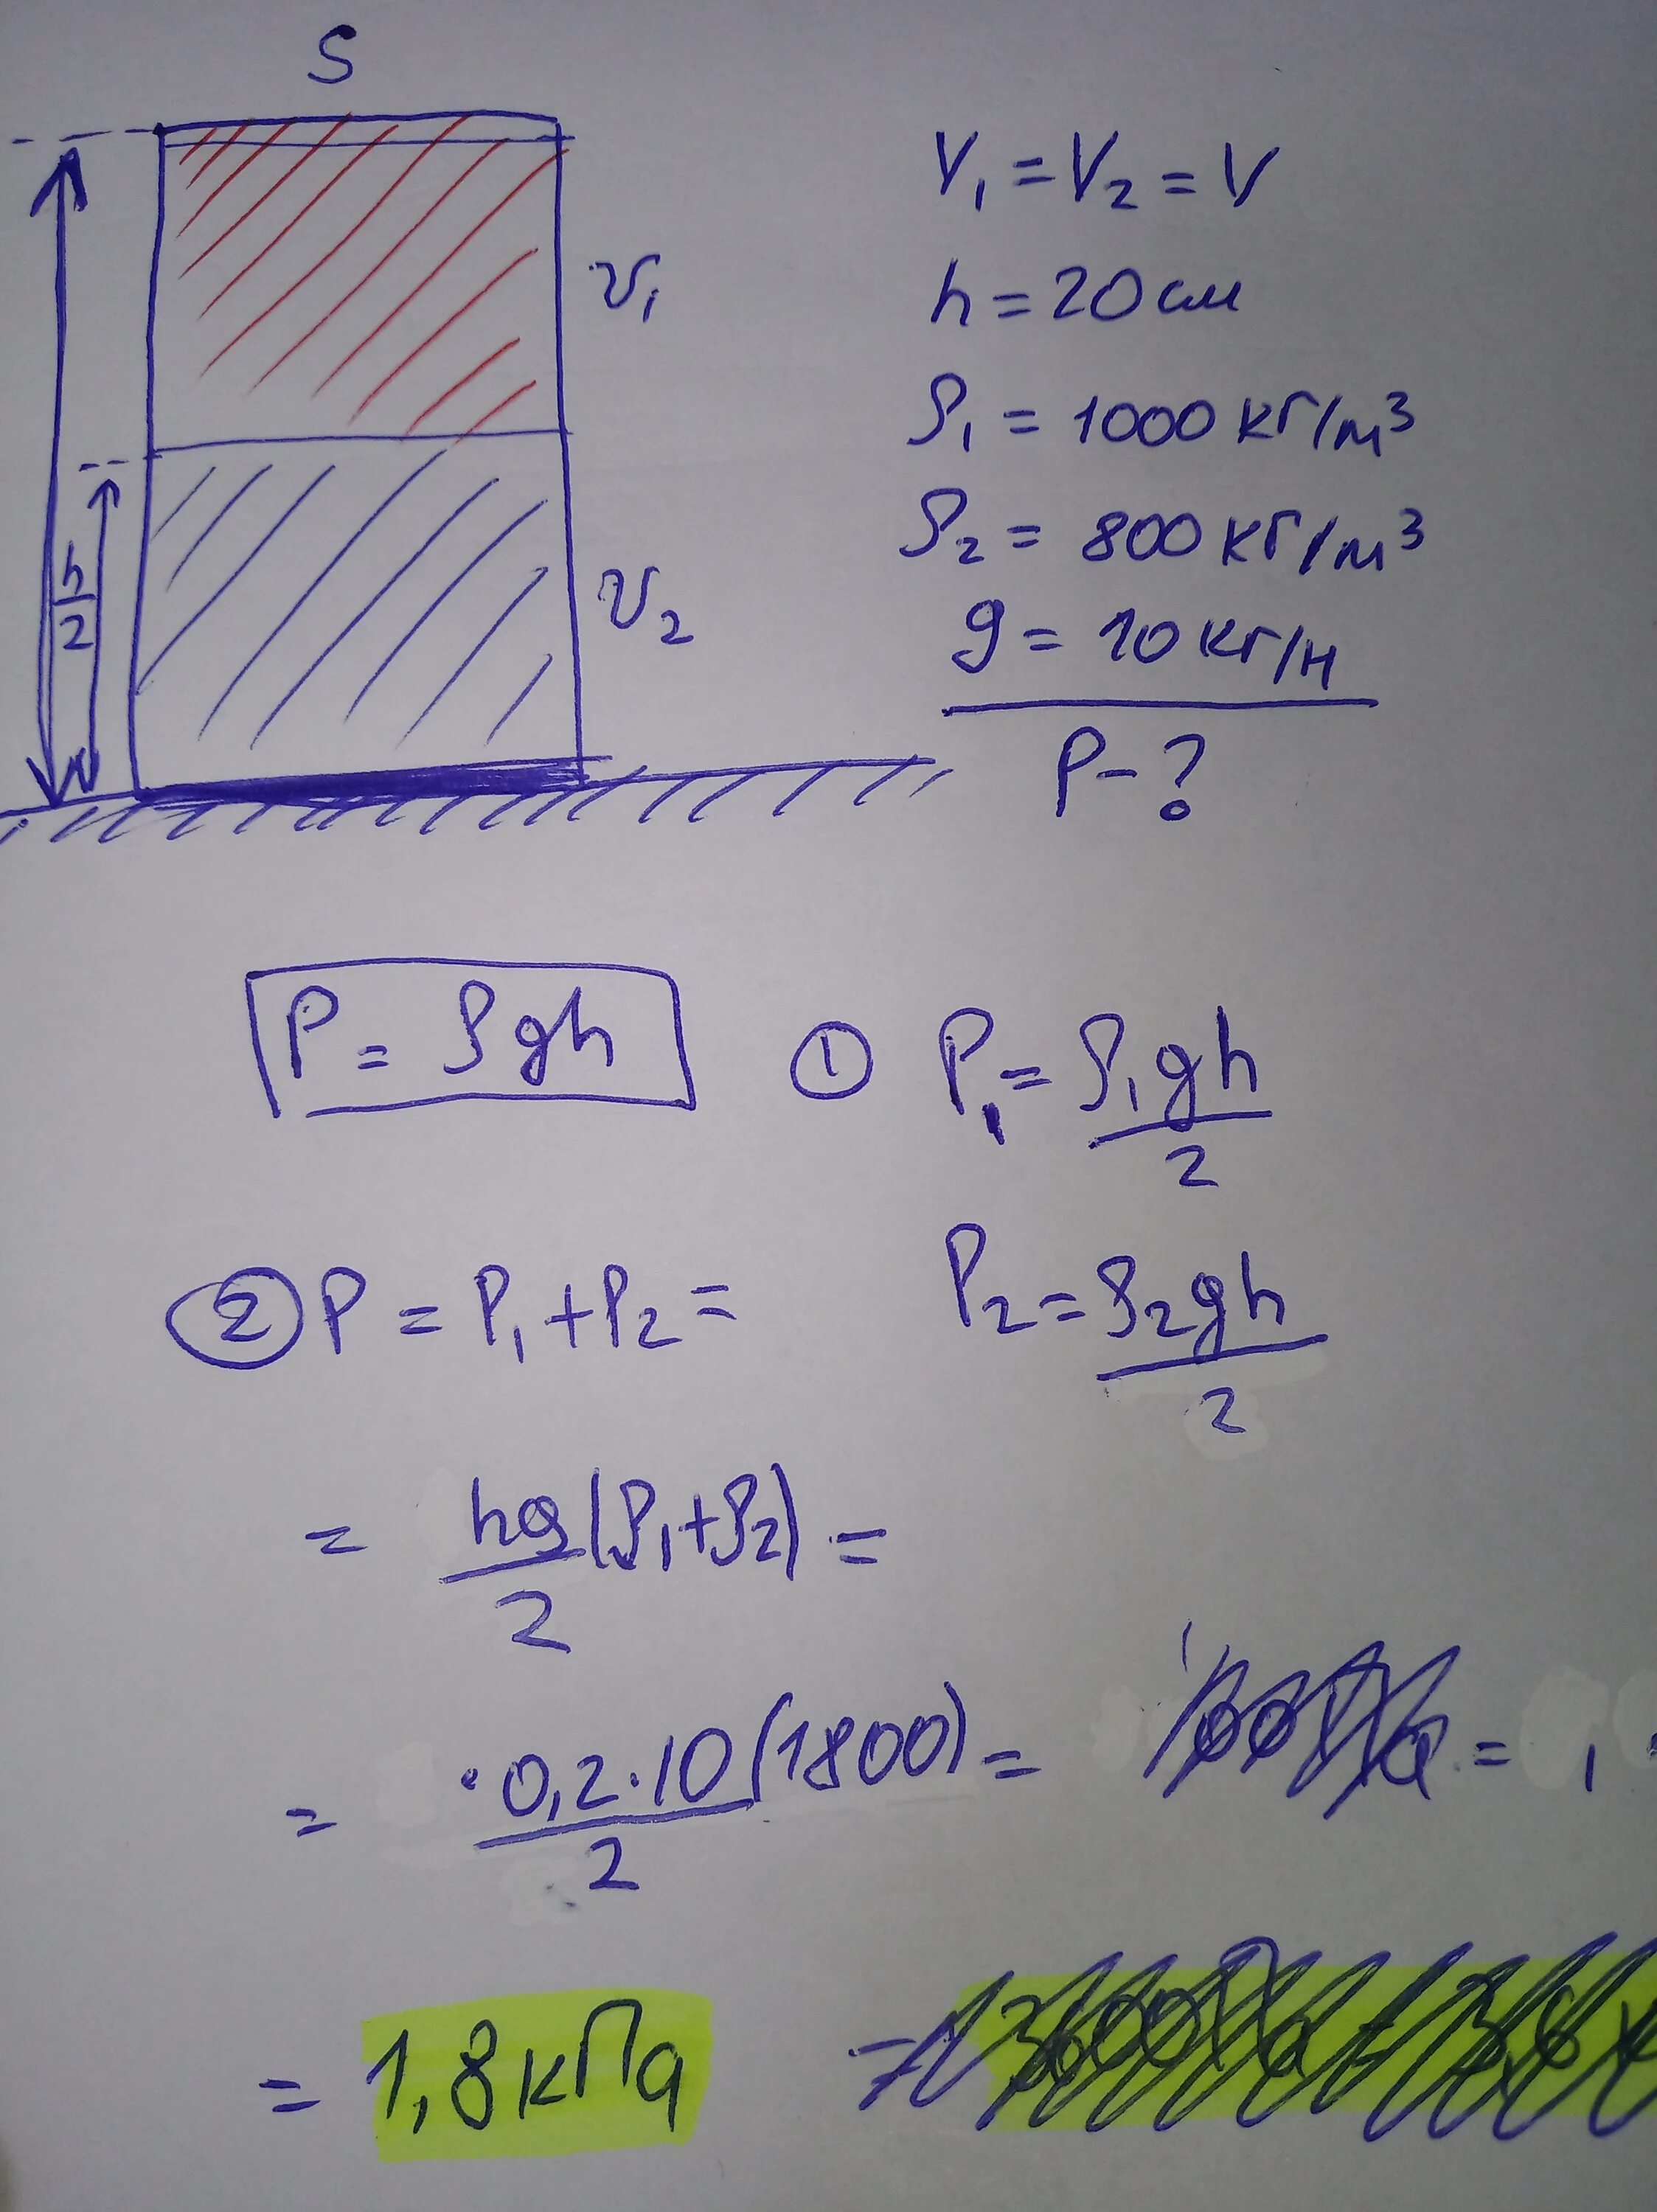 S
V₁ = V₂ = V
h = 20 см
ρ₁ = 1000 кг/м³
ρ₂ = 800 кг/м³
g = 10 кг/н
P - ?
V₁
h/2
V₂
P = ρgh
① P₁ = ρ₁gh/2
P₂ = ρ₂gh/2
② P = P₁ + P₂ =
= hg/2 (ρ₁ + ρ₂) =
= · 0,2 · 10/2 (1800) =
=
= 1,8 кПа